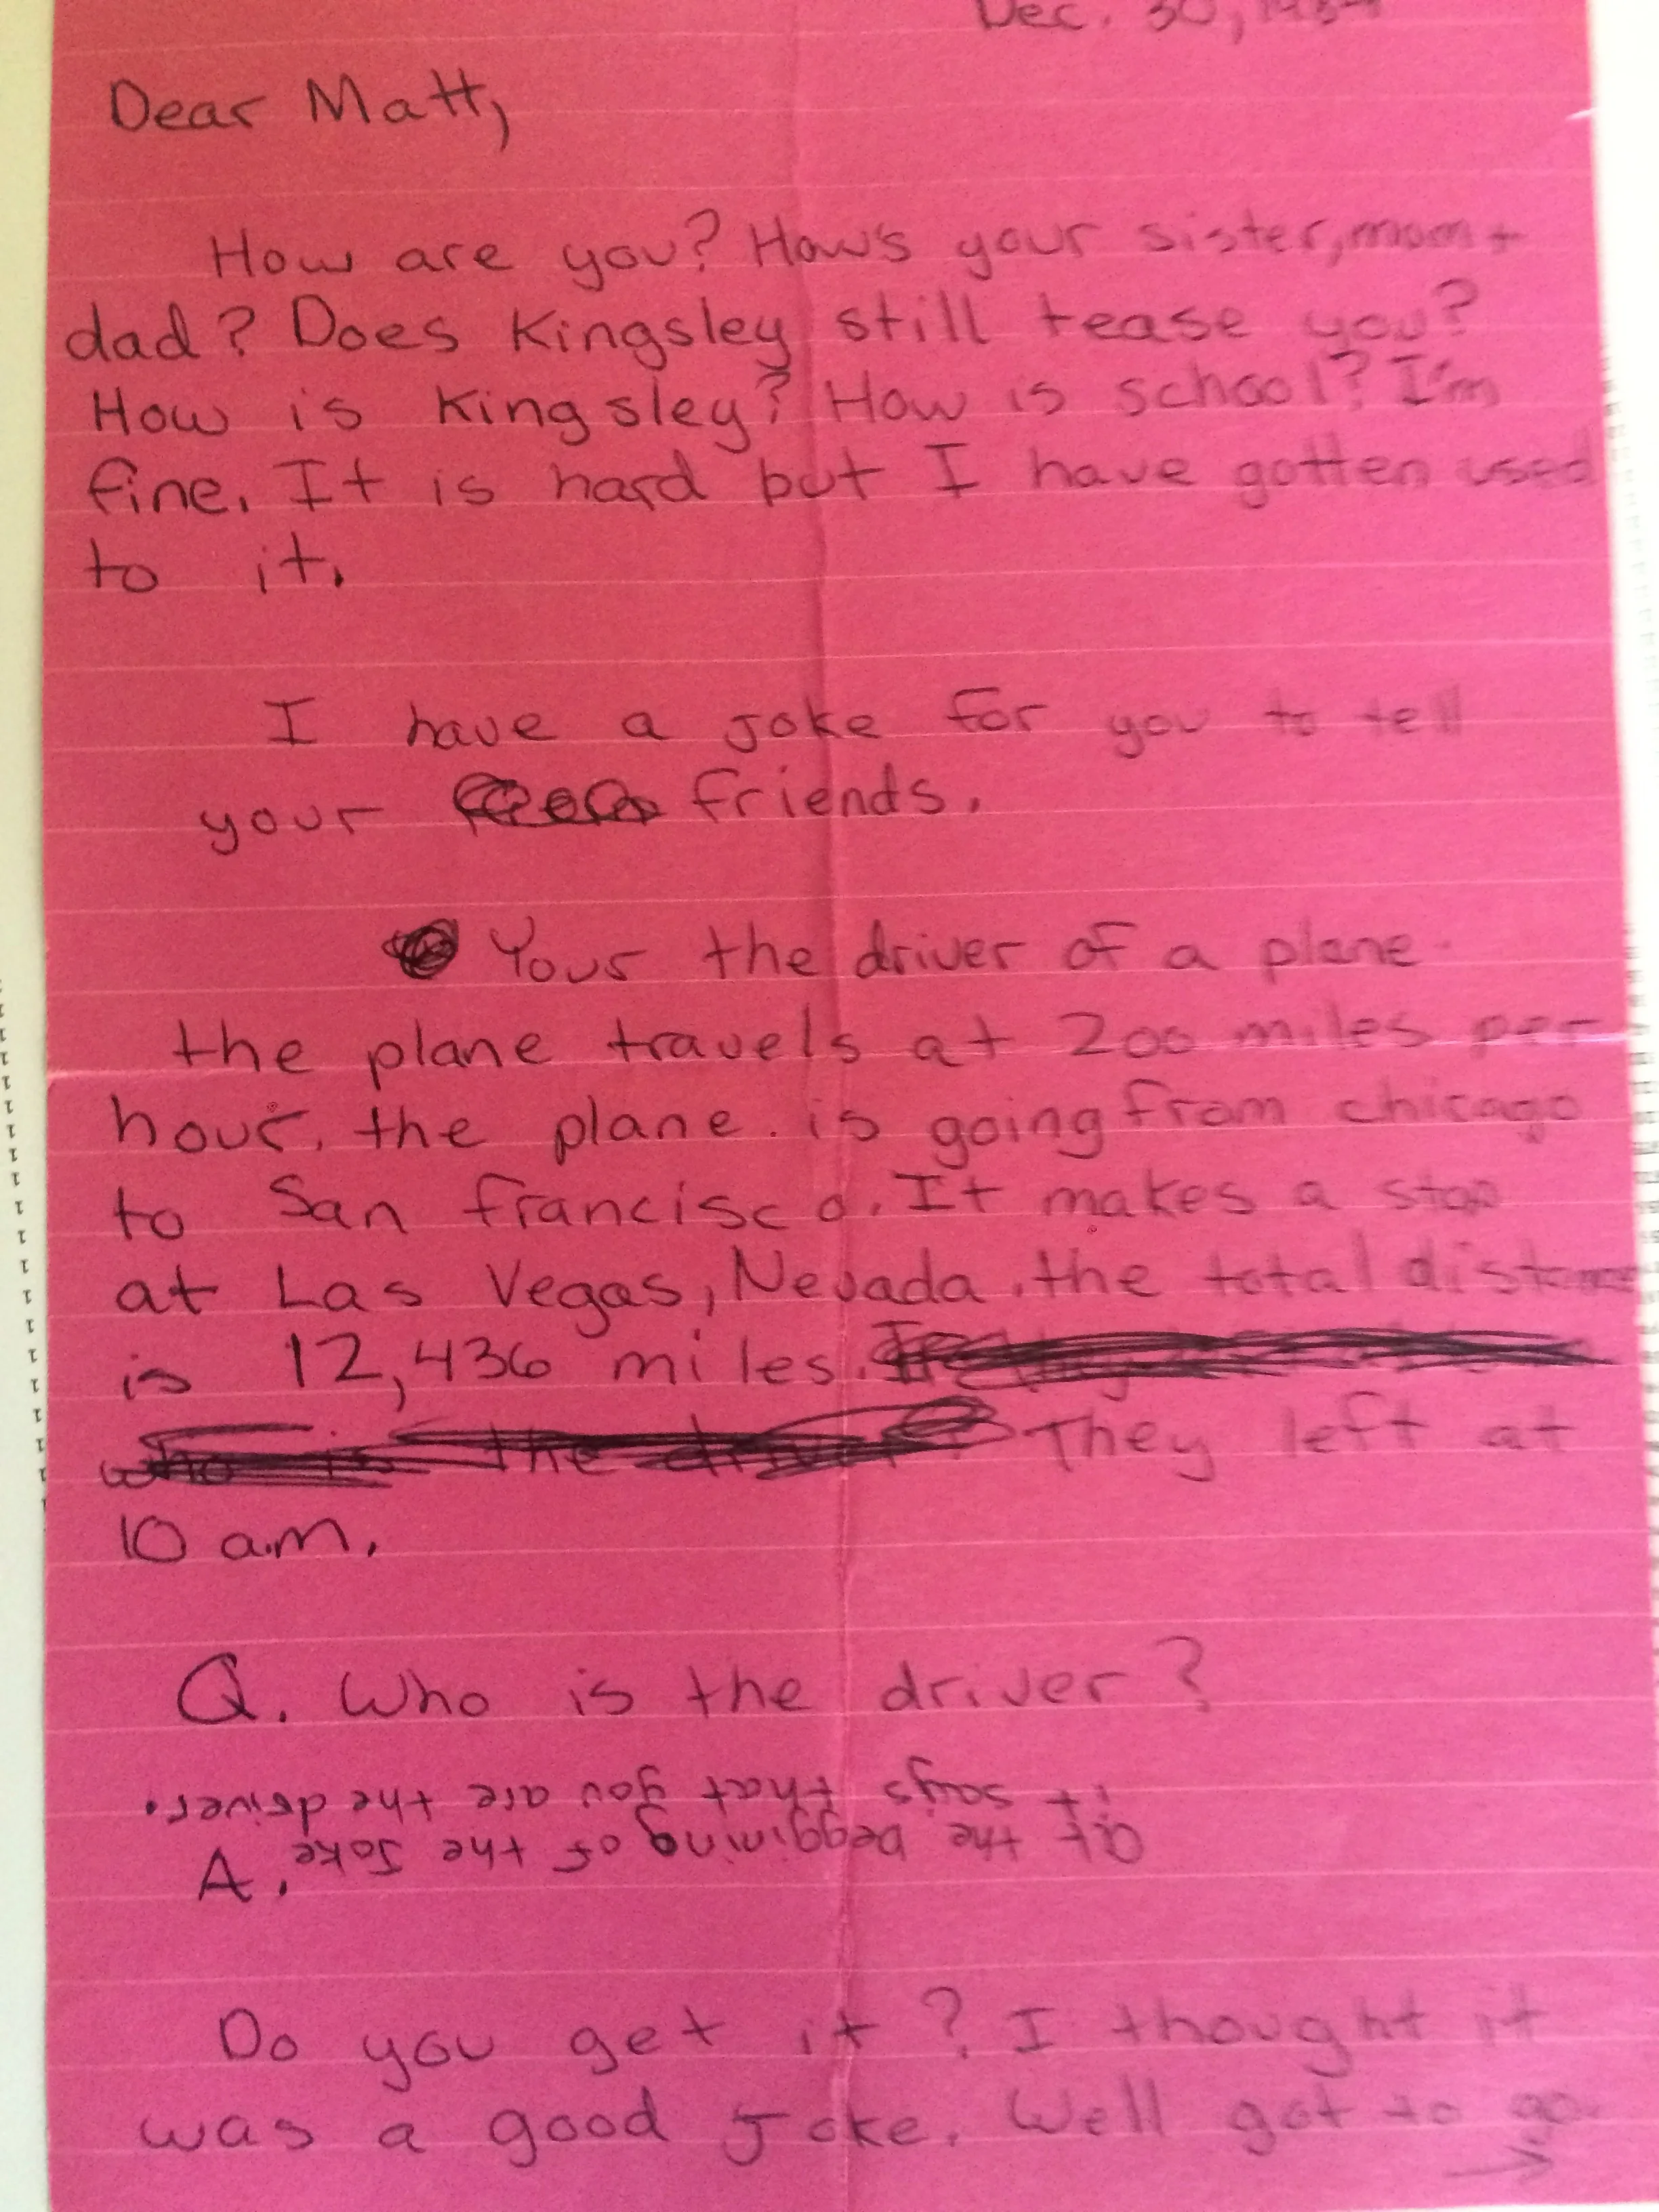 Dec. 30,
Dear Matt,
How are you? How's your sister, mom +
dad? Does Kingsley still tease you?
How is Kingsley? How is school? I'm
fine. It is hard but I have gotten used
to it.
I have a joke for you to tell
your friends.
Your the driver of a plane.
the plane travels at 200 miles per
hour. the plane. is going from chicago
to San francisco. It makes a stop
at Las Vegas, Nevada. the total distance
is 12,436 miles.
who is the driver? They left at
10 a.m.
Q. Who is the driver?
A. at the beggining of the Joke
it says that you are the driver.
Do you get it? I thought it
was a good Joke. Well got to go.
→